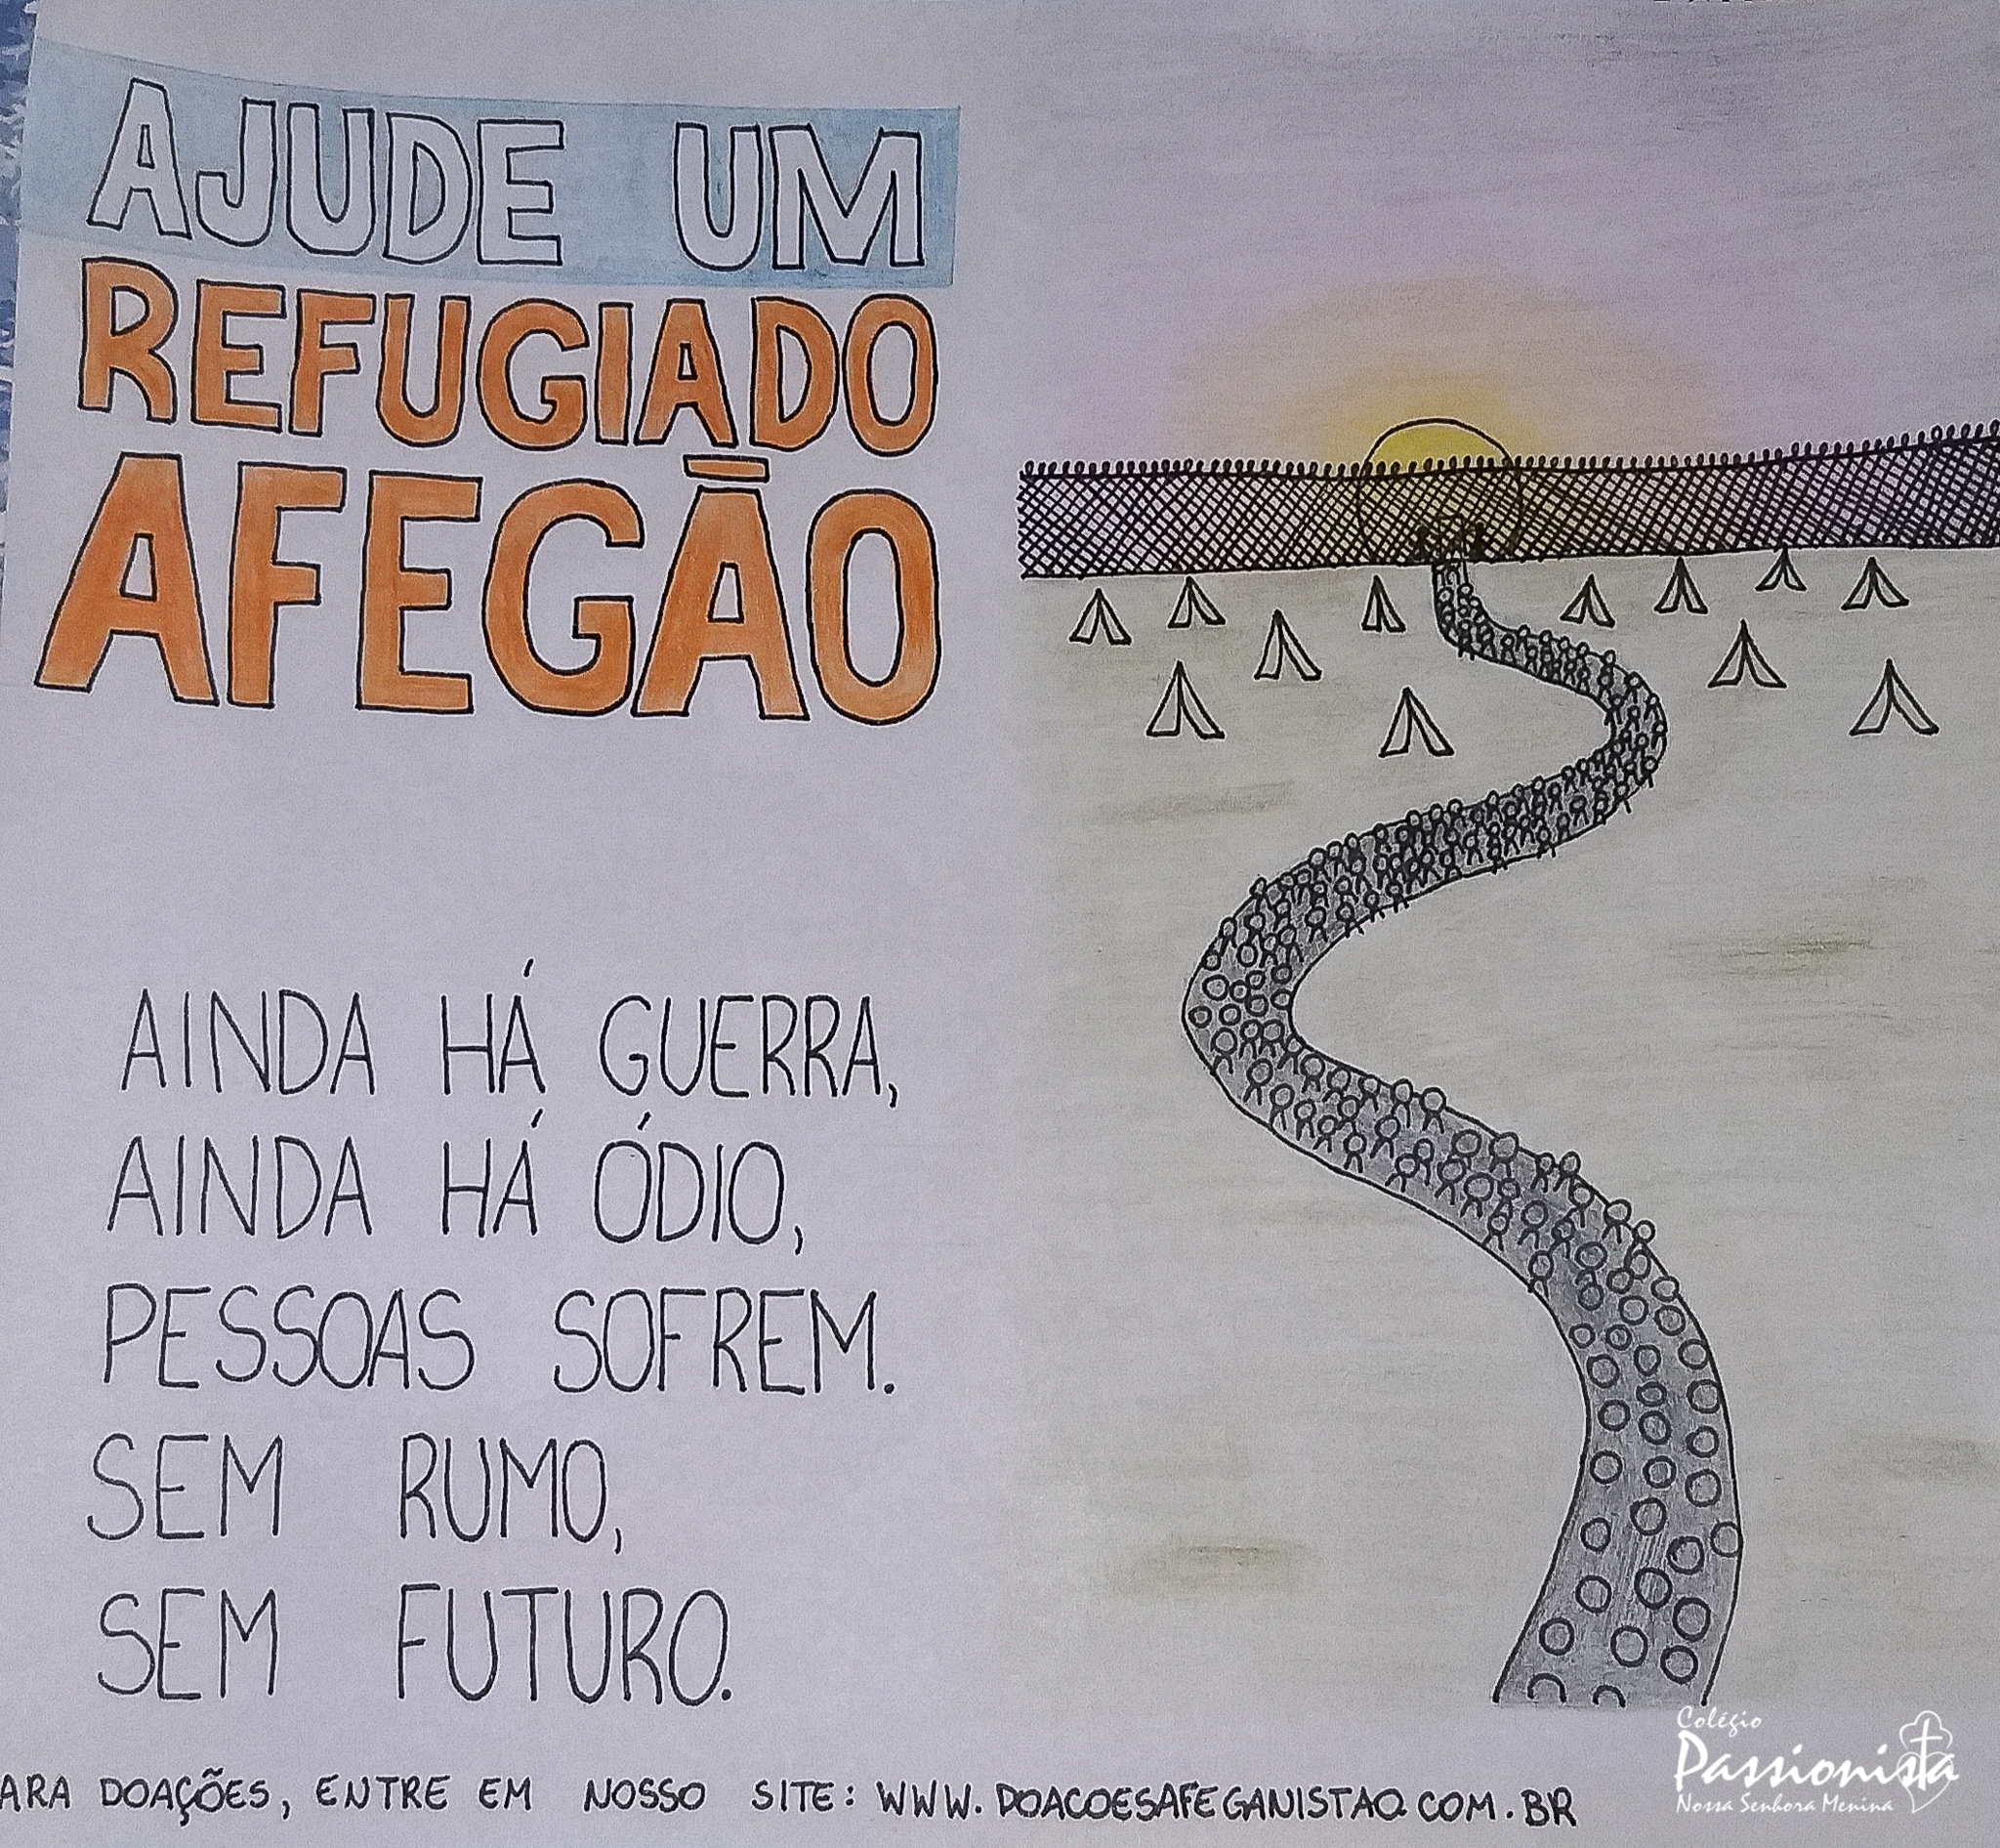 AJUDE UM
REFUGIADO
AFEGÃO
AINDA HÁ GUERRA,
AINDA HÁ ÓDIO,
PESSOAS SOFREM.
SEM RUMO,
SEM FUTURO.
ARA DOAÇÕES, ENTRE EM NOSSO SITE: WWW.DOACOESAFEGANISTAO.COM.BR
Colégio
Passionista
Nossa Senhora Menina